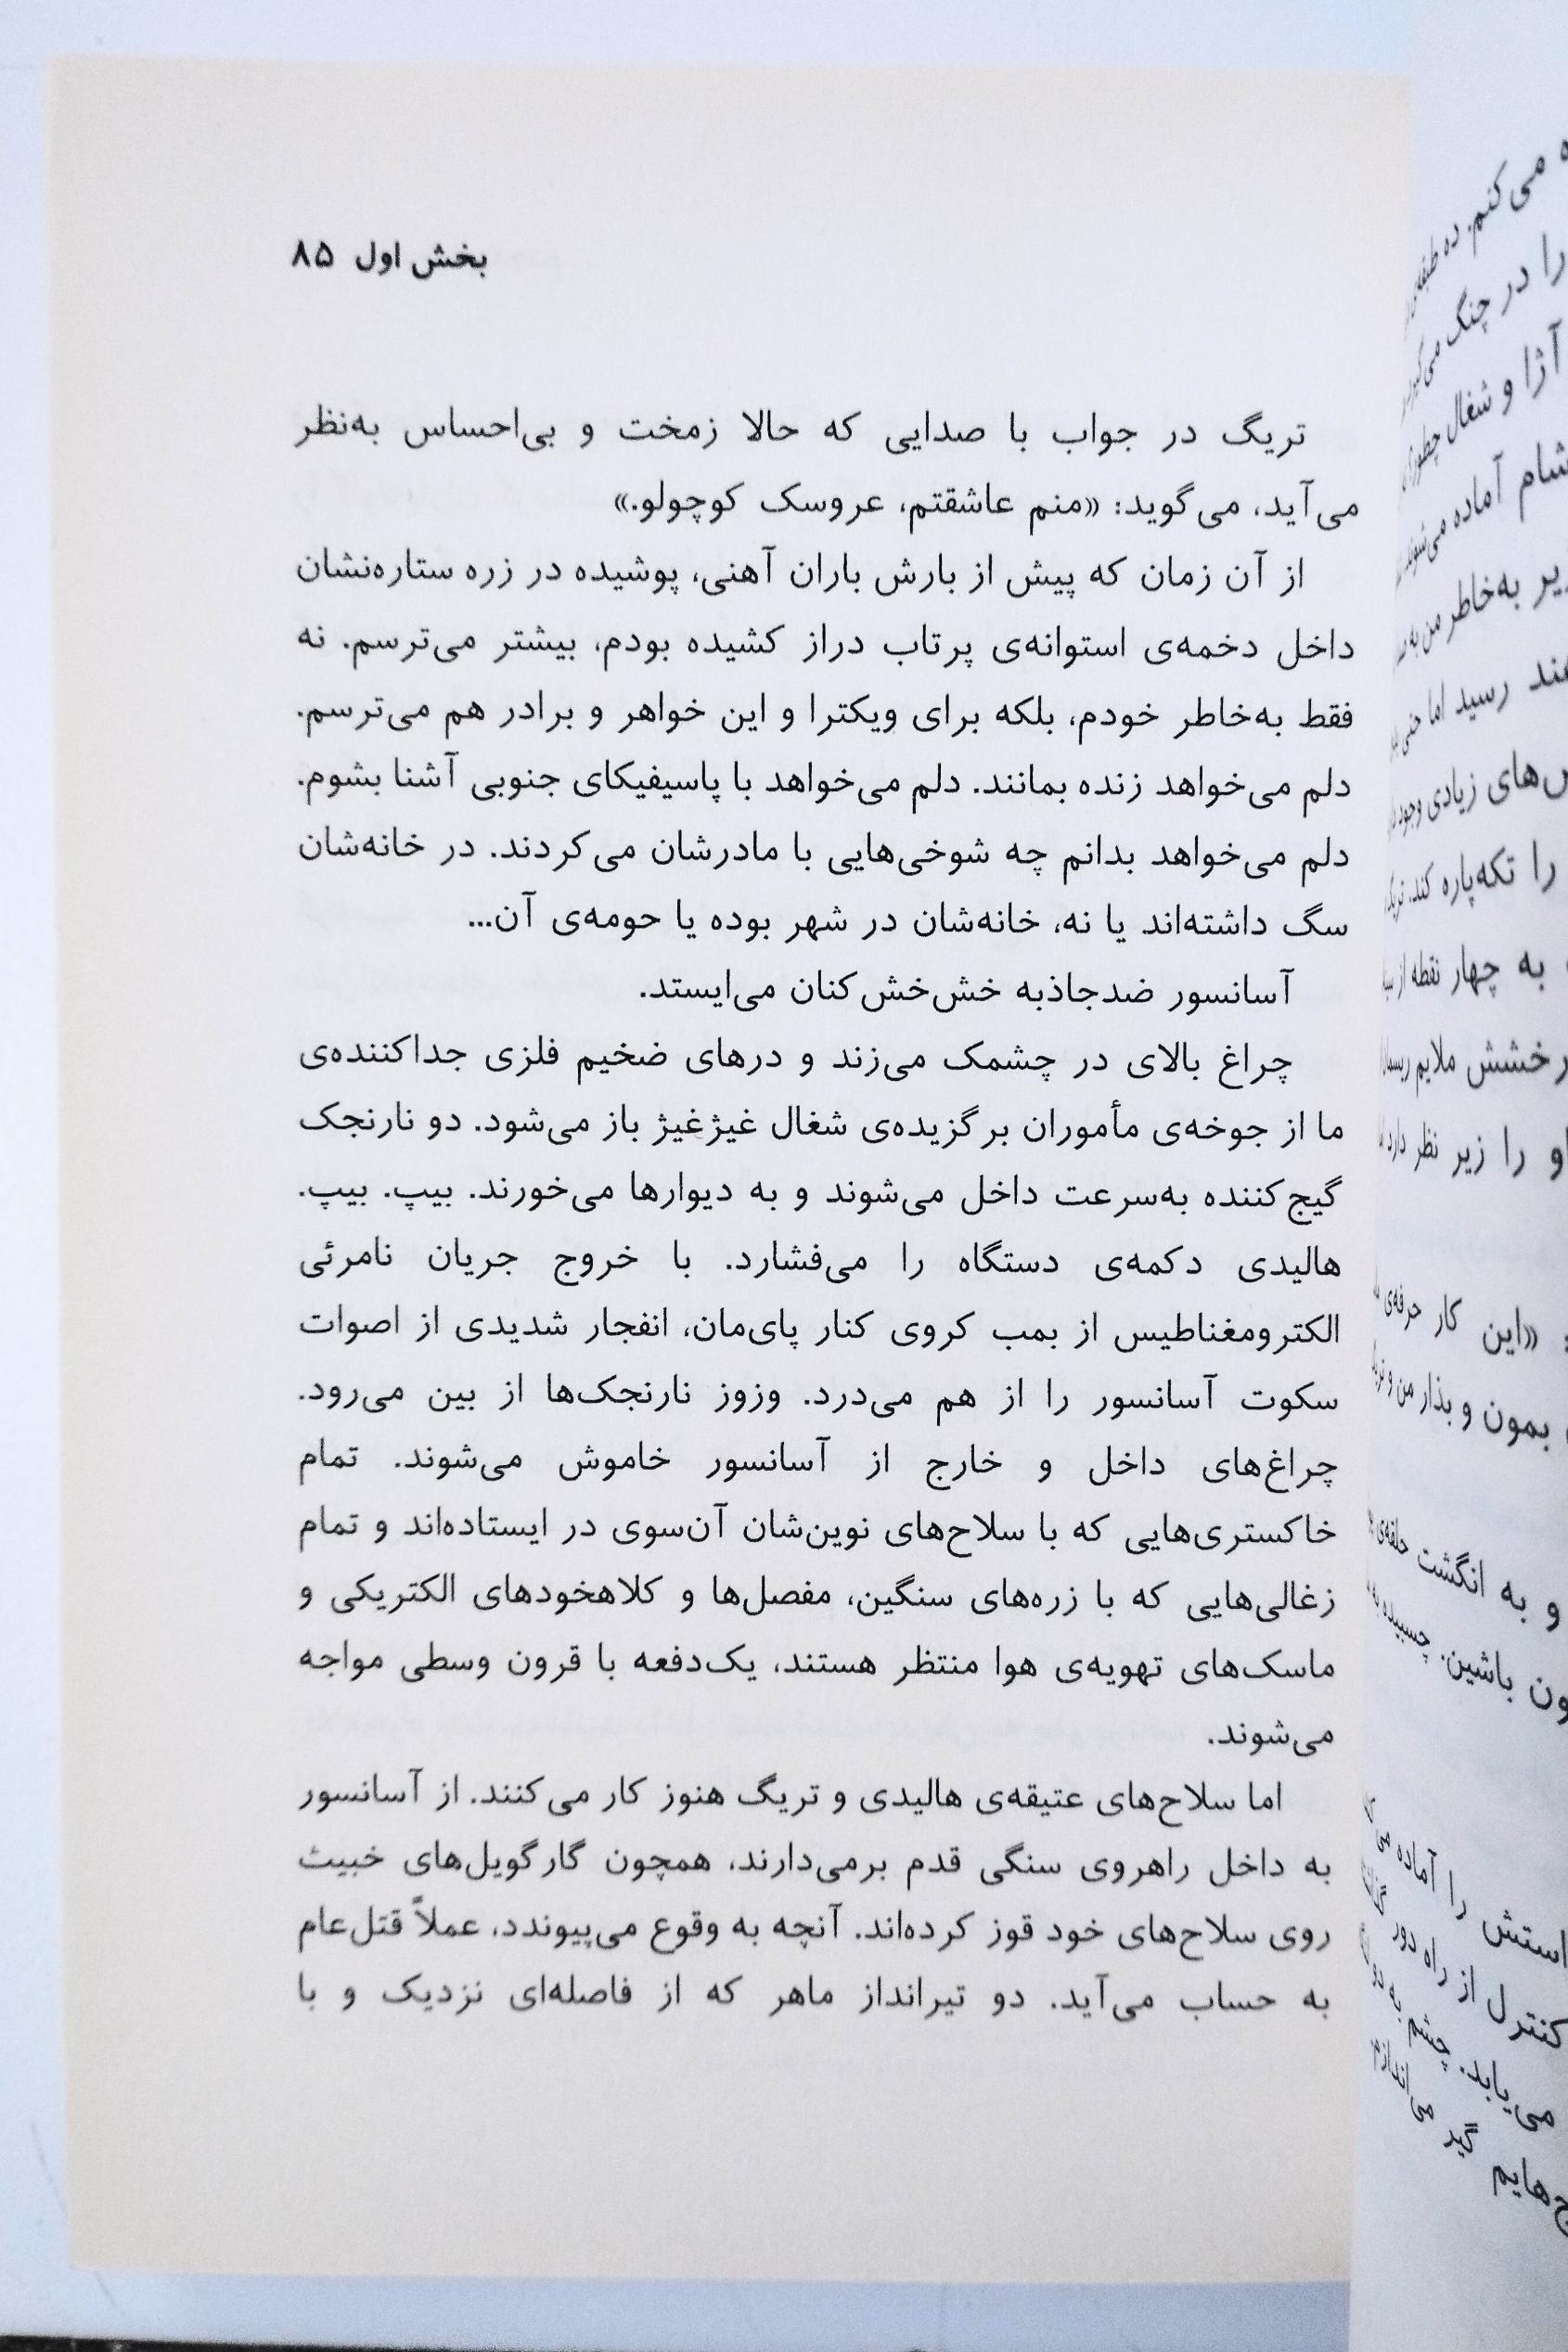 بخش اول ۸۵
تریگ در جواب با صدایی که حالا زمخت و بی‌احساس به‌نظر
می‌آید، می‌گوید: «منم عاشقتم، عروسک کوچولو.»
از آن زمان که پیش از بارش باران آهنی، پوشیده در زره ستاره‌نشان
داخل دخمه‌ی استوانه‌ی پرتاب دراز کشیده بودم، بیشتر می‌ترسم. نه
فقط به‌خاطر خودم، بلکه برای ویکترا و این خواهر و برادر هم می‌ترسم.
دلم می‌خواهد زنده بمانند. دلم می‌خواهد با پاسیفیکای جنوبی آشنا بشوم.
دلم می‌خواهد بدانم چه شوخی‌هایی با مادرشان می‌کردند. در خانه‌شان
سگ داشته‌اند یا نه، خانه‌شان در شهر بوده یا حومه‌ی آن...
آسانسور ضدجاذبه خش‌خش‌کنان می‌ایستد.
چراغ بالای در چشمک می‌زند و درهای ضخیم فلزی جداکننده‌ی
ما از جوخه‌ی مأموران برگزیده‌ی شغال غیژغیژ باز می‌شود. دو نارنجک
گیج‌کننده به‌سرعت داخل می‌شوند و به دیوارها می‌خورند. بیپ. بیپ.
هالیدی دکمه‌ی دستگاه را می‌فشارد. با خروج جریان نامرئی
الکترومغناطیس از بمب کروی کنار پای‌مان، انفجار شدیدی از اصوات
سکوت آسانسور را از هم می‌درد. وزوز نارنجک‌ها از بین می‌رود.
چراغ‌های داخل و خارج از آسانسور خاموش می‌شوند. تمام
خاکستری‌هایی که با سلاح‌های نوین‌شان آن‌سوی در ایستاده‌اند و تمام
زغالی‌هایی که با زره‌های سنگین، مفصل‌ها و کلاهخودهای الکتریکی و
ماسک‌های تهویه‌ی هوا منتظر هستند، یک‌دفعه با قرون وسطی مواجه
می‌شوند.
اما سلاح‌های عتیقه‌ی هالیدی و تریگ هنوز کار می‌کنند. از آسانسور
به داخل راهروی سنگی قدم برمی‌دارند، همچون گارگویل‌های خبیث
روی سلاح‌های خود قوز کرده‌اند. آنچه به وقوع می‌پیوندد، عملاً قتل‌عام
به حساب می‌آید. دو تیرانداز ماهر که از فاصله‌ای نزدیک و با
می‌کنم. ده
را در چنگ
آژا و شغال
شام آماده
به‌خاطر من
رسید اما
زیادی وجود
را تکه‌پاره کند.
به چهار نقطه از
ملایم
را زیر نظر دارد
«این کار حرفه‌ی
بمون و بذار من و
و به انگشت
باشین. چسبیده
را آماده
کنترل از راه دور
می‌یابد. چشم به
گیر می‌اندازم